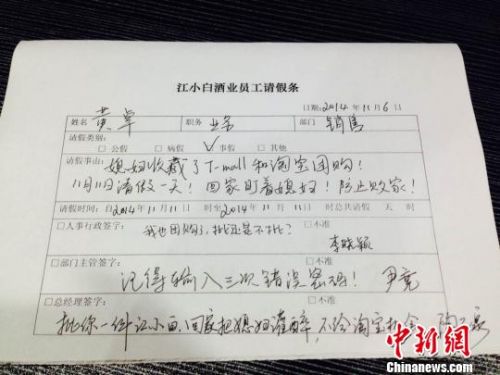 江小白酒业员工请假条
日期:2014年11月6日
姓名 黄卓 职务 业务 部门 销售
请假类别:
□公假 □病假 ☑事假 □其他
请假事由: 媳妇收藏了T-mall和淘宝团购!
11月11日请假一天!回家盯着媳妇!防止败家!
请假时间:自2014年11月11日 时至2014年11月11日 时总共请假 天 时
□人事行政签字: □不准
我也团购了,批还是不批?
李晓颖
□部门主管签字: □不准
记得输入三次错误密码! 尹亮
□总经理签字: □不准
批你一件江小白,回家把媳妇灌醉,不给淘宝机会
中新网
ChinaNews.com